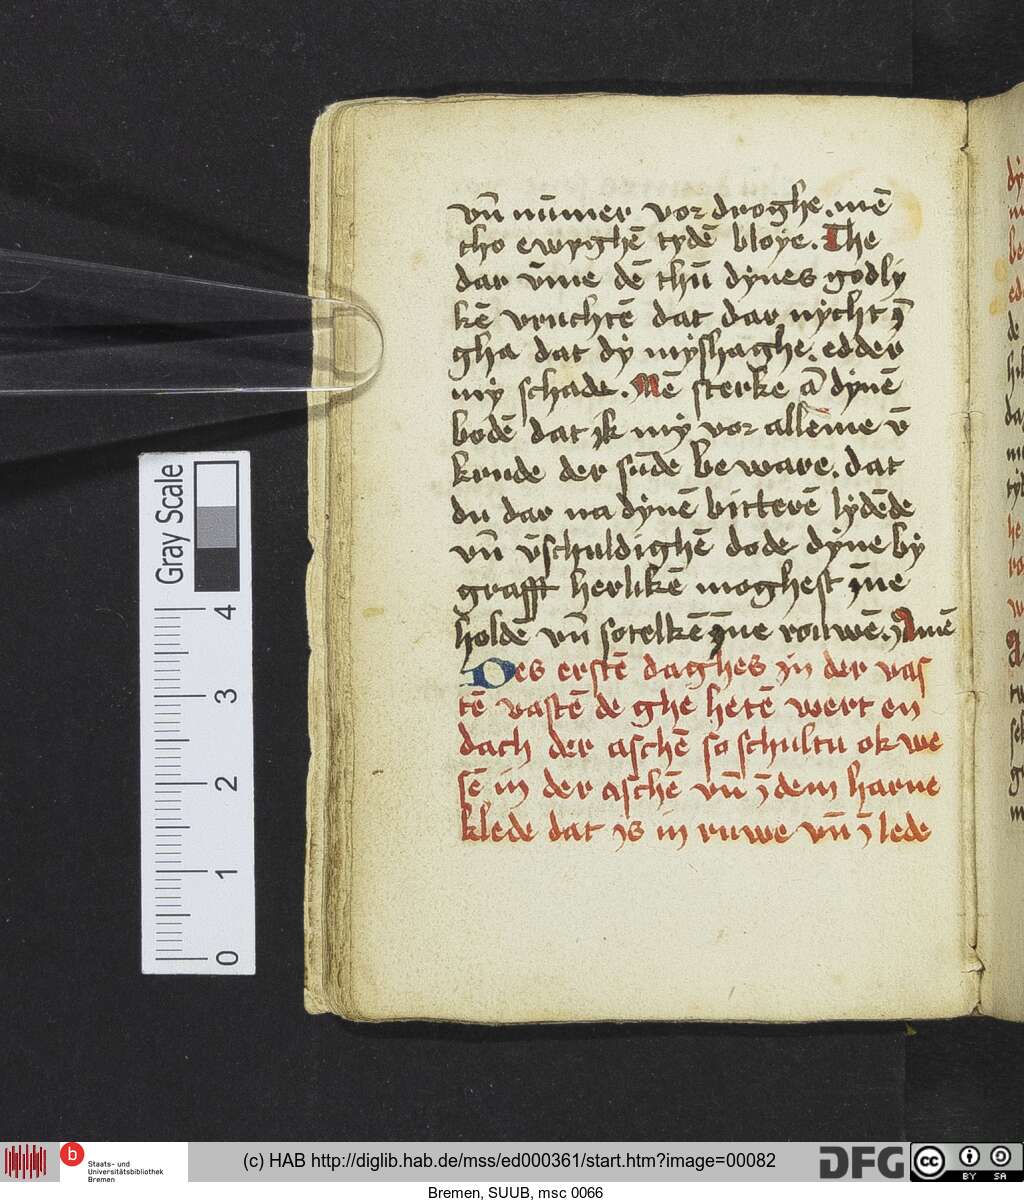 vn̄ nūmer vor droghe. mē
tho ewyghē tydē bloye. The
dar v̄me dē thū dynes godly
kē vruchtē dat dar nycht
gha dat dy myshaghe. edder
my schade. Mē sterke ā dynē
bodē dat yk my vor alleme v̄
krude der sūde beware. dat
du dar na dynē bitterē lydēde
vn̄ v̄schuldighē dode dyne by
grafft herlikē moghest yne
holdē vn̄ sotelkē yne rouwē. Amē
Des erstē daghes yn der vas
tē vastē de ghe hetē wert en
dach der aschē so schultu ok we
sē in der aschē vn̄ ȳ dem harne
klede dat ys in ruwe vn̄ ȳ lede
Gray Scale
4
3
2
1
0
dy
be
ed
de
da
ty
he
ro
b
Staats- und
Universitätsbibliothek
Bremen
(c) HAB http://diglib.hab.de/mss/ed000361/start.htm?image=00082
DFG
cc
BY SA
Bremen, SUUB, msc 0066